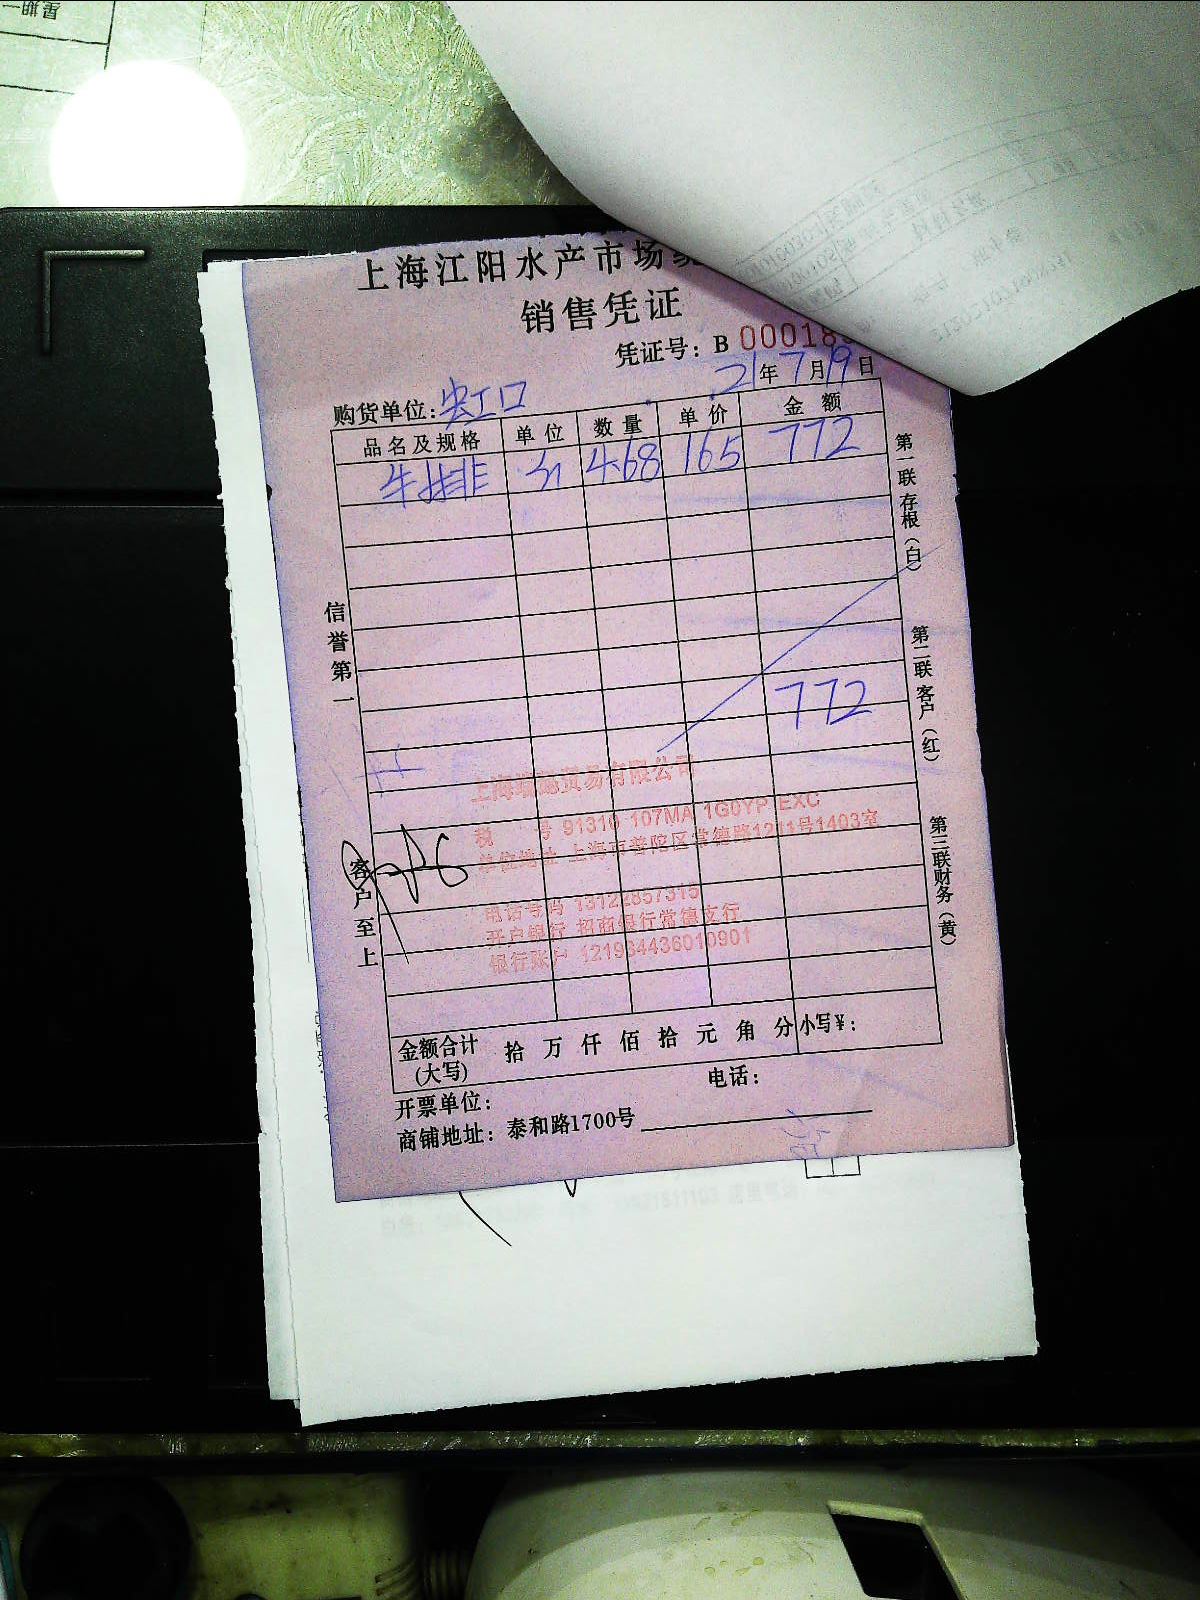 星期一
上海江阳水产市场
销售凭证
凭证号：B 00018
21年7月19日
购货单位：虹口
品名及规格 单位 数量 单价 金额
牛排 4.68 165 772
772
信誉第一
客户至上
第一联存根（白）
第二联客户（红）
第三联财务（黄）
上海 贸易有限公司
税 号 91310 107MA 1G0YP EXC
单位地址 上海市普陀区常德路1211号1403室
电话号码 13122857315
开户银行 招商银行常德支行
银行账户 121934436010901
金额合计(大写) 拾 万 仟 佰 拾 元 角 分 小写￥：
电话：
开票单位：
商铺地址：泰和路1700号